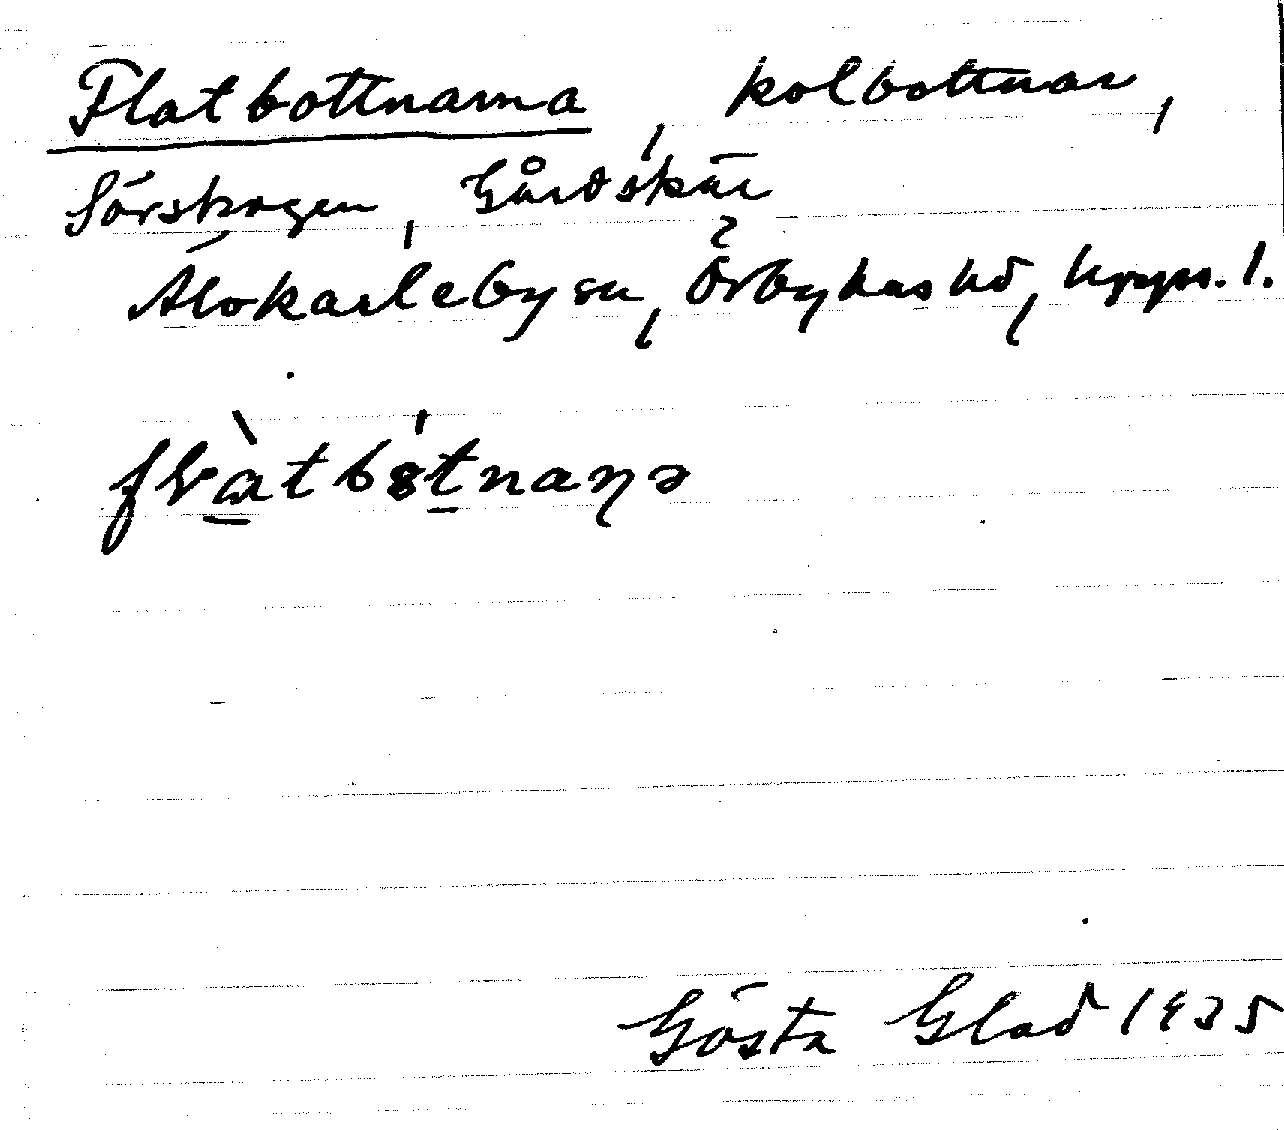 Flatbottnarna, kolbottnar,
Sörskogen, Gårdskär
Älvkarleby sn, Örbyhus hd, Upps. l.
flàtbòtnaṇə
Gösta Glad 1935